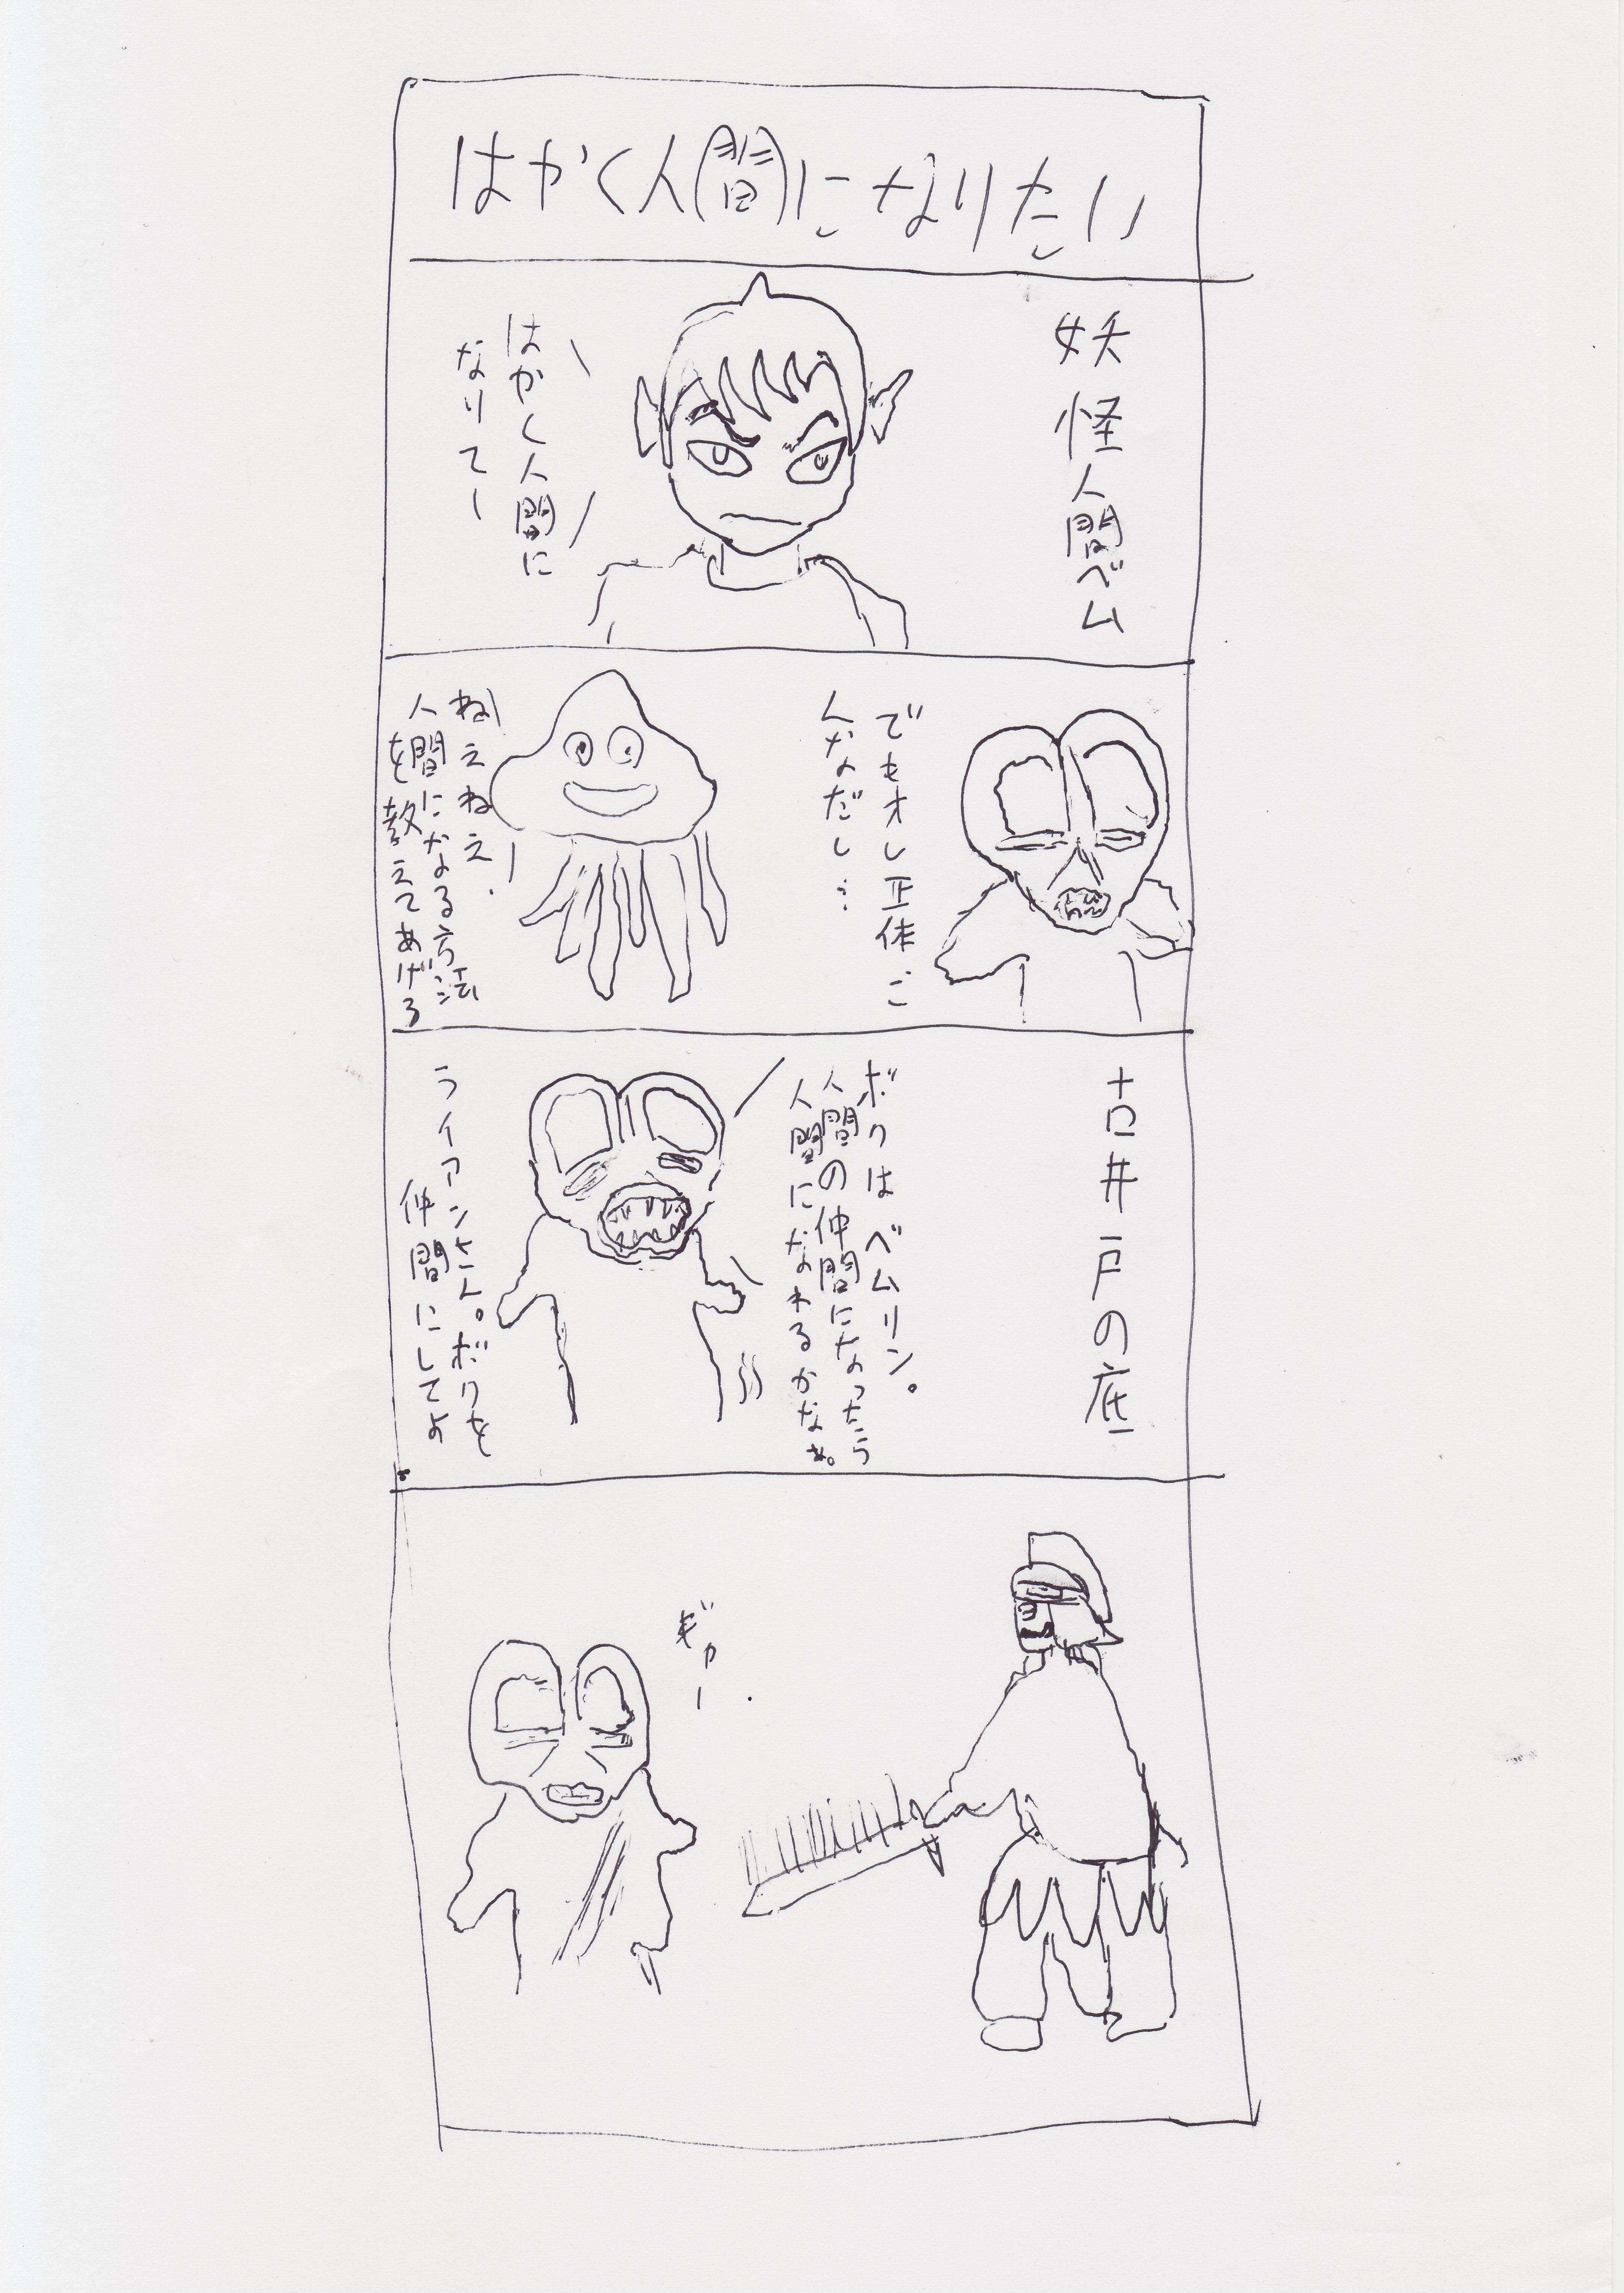 はかく人間になりたい
妖怪人間ベム
はかく人間に
なりてー
でもオレ正体こ
んなだし…
ねえねえ。
人間になる方法
を教えてあげろ
古井戸の底
ボクはベムリン。
人間の仲間になったら
人間になれるかなぁ。
ライアンさん。ボクを
仲間にしてよ
ギャー